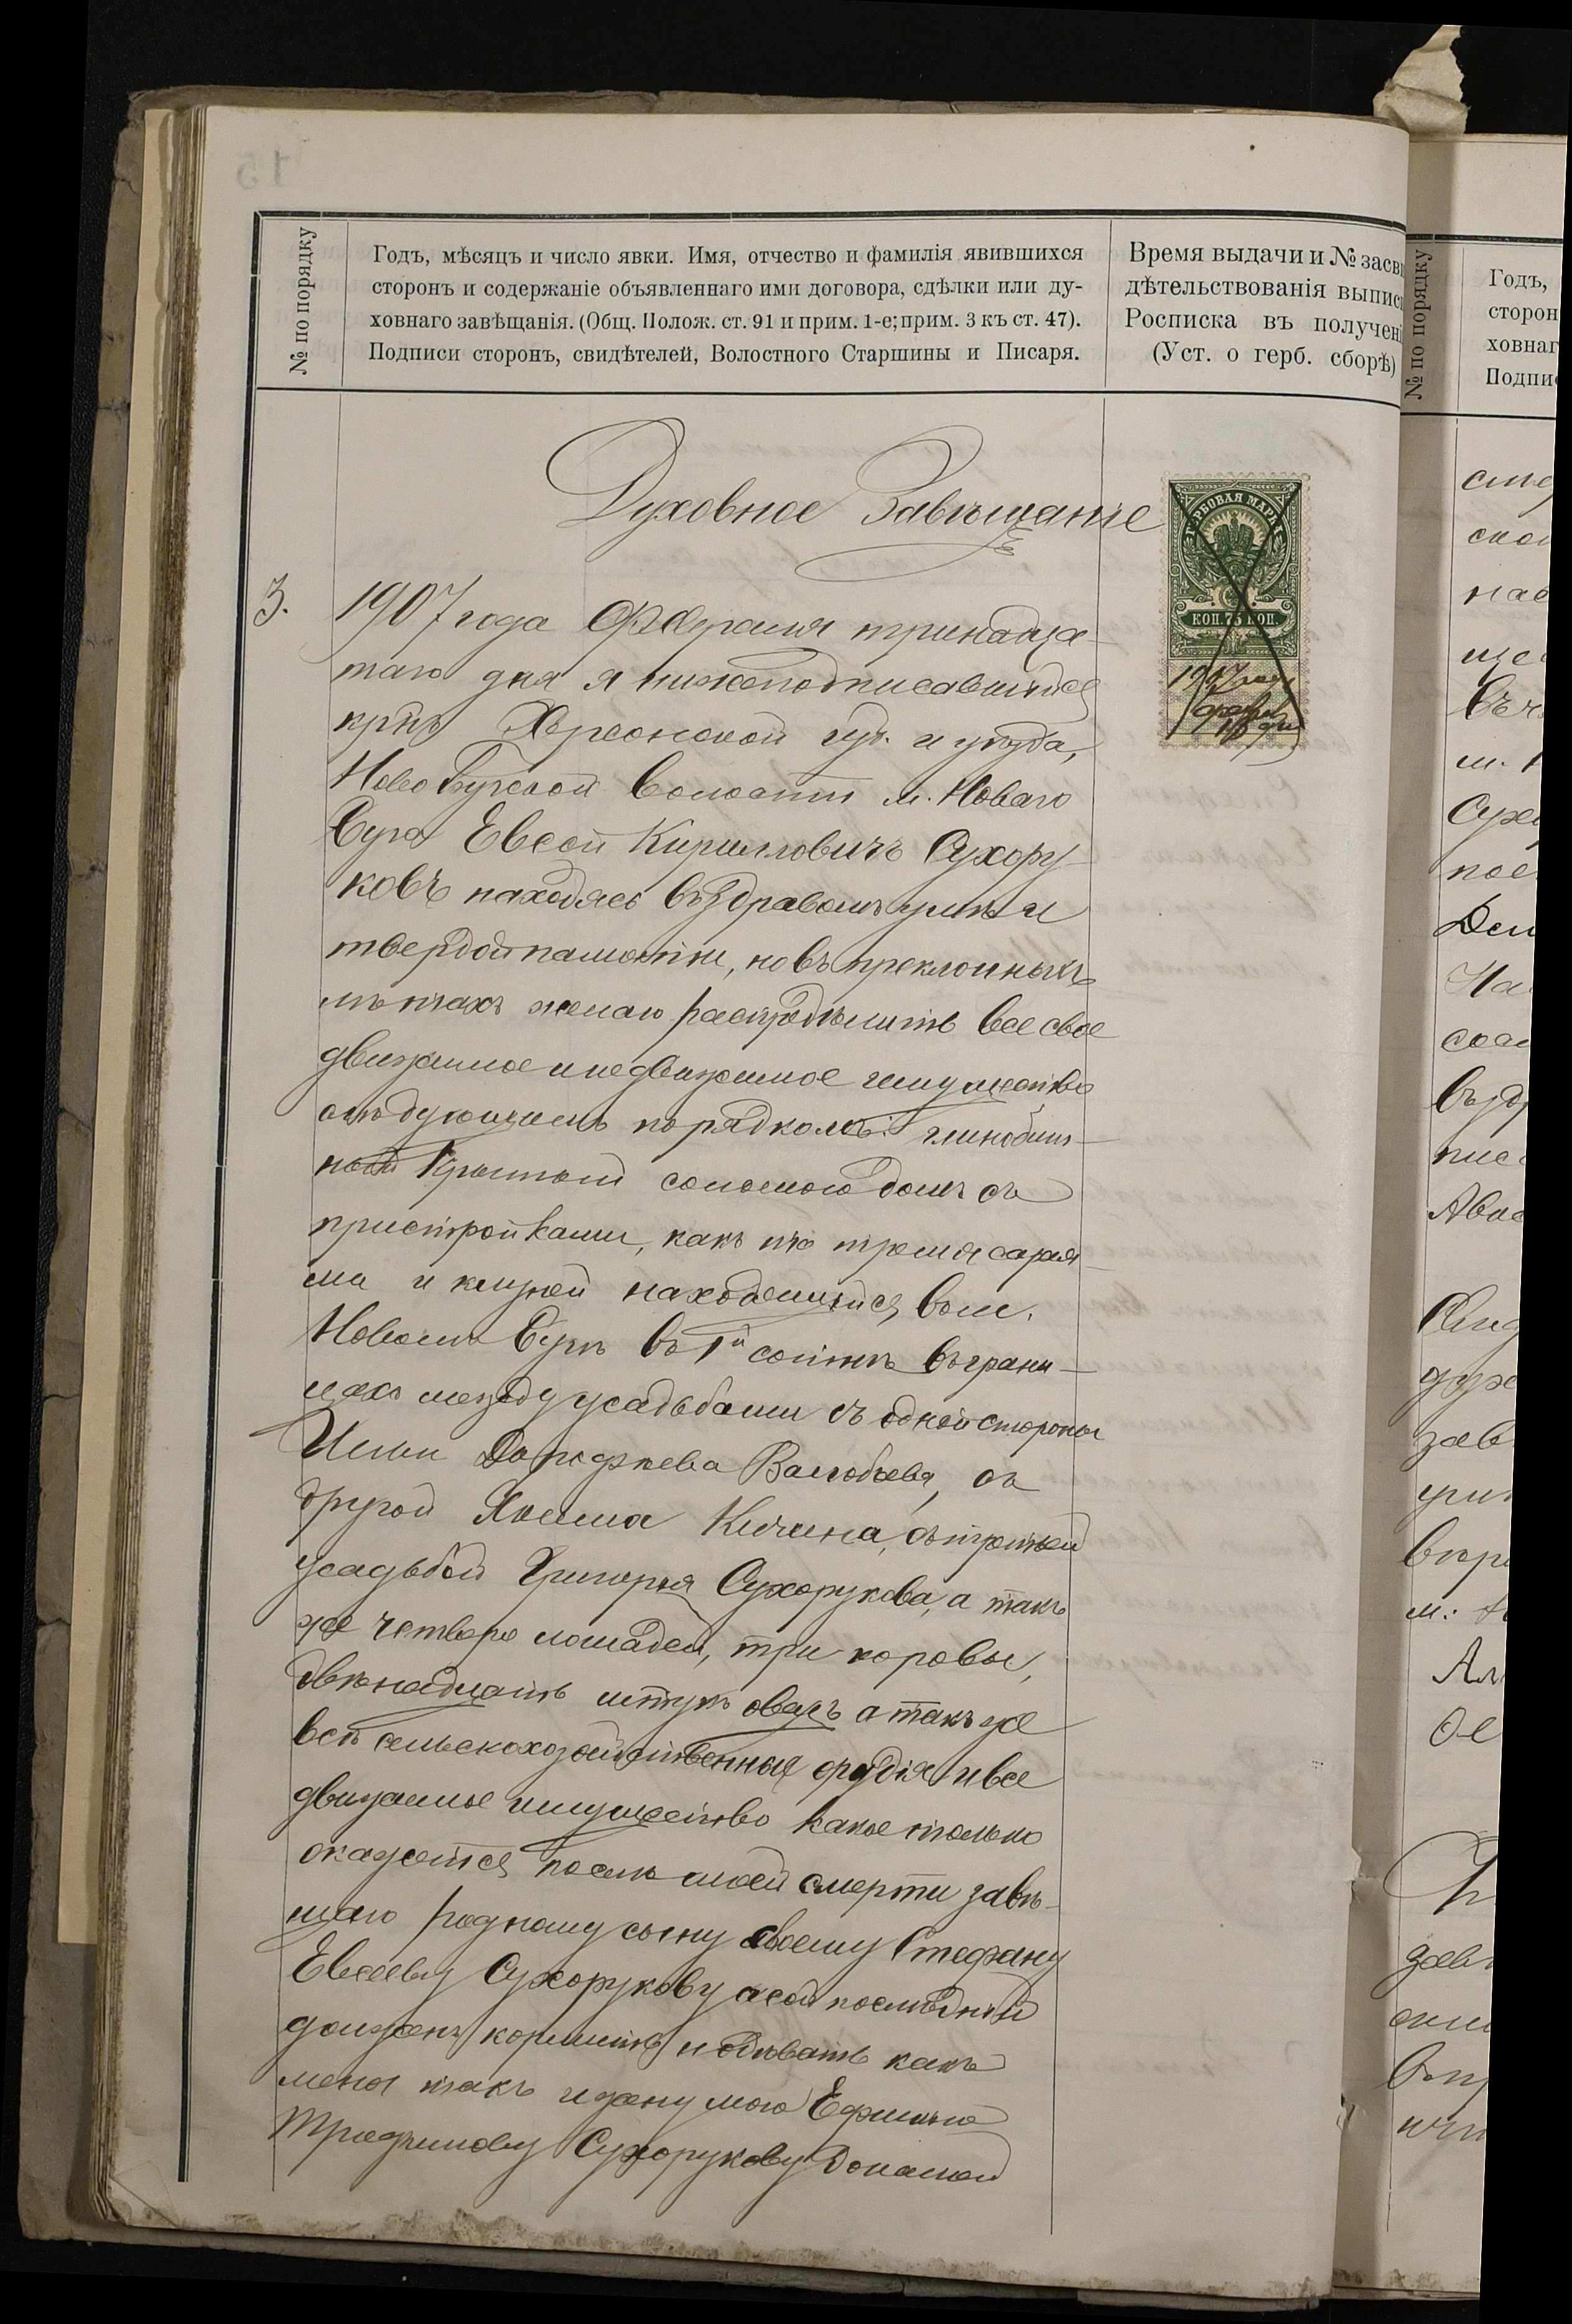 № по порядку
Годъ, мѣсяцъ и число явки. Имя, отчество и фамилія явившихся
сторонъ и содержаніе объявленнаго ими договора, сдѣлки или ду-
ховнаго завѣщанія. (Общ. Полож. ст. 91 и прим. 1-е; прим. 3 къ ст. 47).
Подписи сторонъ, свидѣтелей, Волостного Старшины и Писаря.
Время выдачи и № засви
дѣтельствованія выпис
Росписка въ получен
(Уст. о герб. сборѣ)
Духовное Завѣщаніе
ГЕРБОВАЯ МАРКА
КОП. 75 КОП.
1907 года
3.
1907 года Февраля тринадца-
таго дня я нижеподписавшійся
крнъ Херсонской губ. и уѣзда,
Ново Бугской волости м. Новаго
Буга Евсей Кирилловичъ Сухору-
ковъ находясь въ здравомъ умѣ и
твердой памяти, но въ преклонныхъ
лѣтахъ желаю распредѣлить все свое
движимое и недвижимое имущество
слѣдующимъ порядкомъ: глинобит-
ный крытый соломою домъ съ
пристройками, какъ то тремя сарая-
ми и клуней находящійся въ м.
Новомъ Бугѣ въ 1й сотнѣ въ грани-
цахъ между усадьбами съ одной стороны
Ильи
другой Якима Кичина, съ третьей
усадьбой Григорія Сухорукова, а такъ
же четверо лошадей, три коровы,
двѣнадцать штукъ овецъ а такъ же
всѣ сельскохозяйственныя орудія и все
движимое имущество какое только
окажется послѣ моей смерти завѣ-
щаю родному сыну своему Стефану
Евсееву Сухорукову а сей послѣдній
долженъ кормить и одѣвать какъ
меня такъ и жену мою Ефимію
Трофимову Сухорукову до нашей
№ по порядку
Годъ,
сторон
ховнаг
Подпи